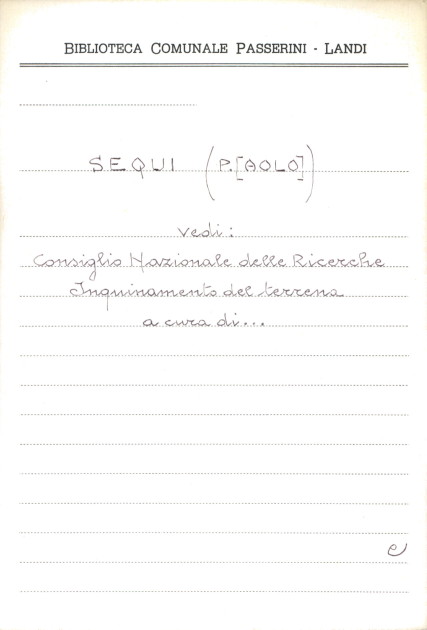 BIBLIOTECA COMUNALE PASSERINI - LANDI
SEQUI (P.[AOLO])
vedi:
Consiglio Nazionale delle Ricerche
Inquinamento del terrena
a cura di...
e